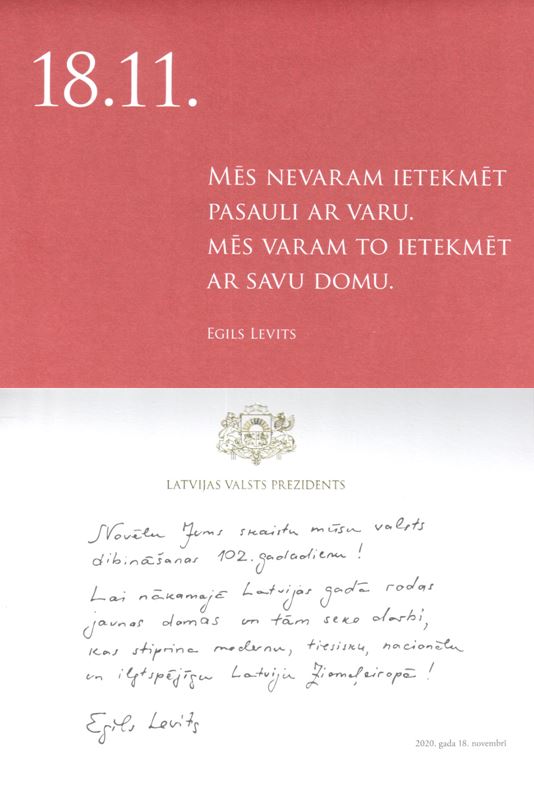 18.11.
MĒS NEVARAM IETEKMĒT
PASAULI AR VARU.
MĒS VARAM TO IETEKMĒT
AR SAVU DOMU.
EGILS LEVITS
LATVIJAS VALSTS PREZIDENTS
Novēlu Jums skaistu mūsu valsts
dibināšanas 102. gadadienu!
Lai nākamajā Latvijas gadā rodas
jaunas domas un tām seko darbi,
kas stiprina modernu, tiesisku, nacionālu
un ilgtspējīgu Latviju Ziemeļeiropā!
Egils Levits
2020. gada 18. novembrī